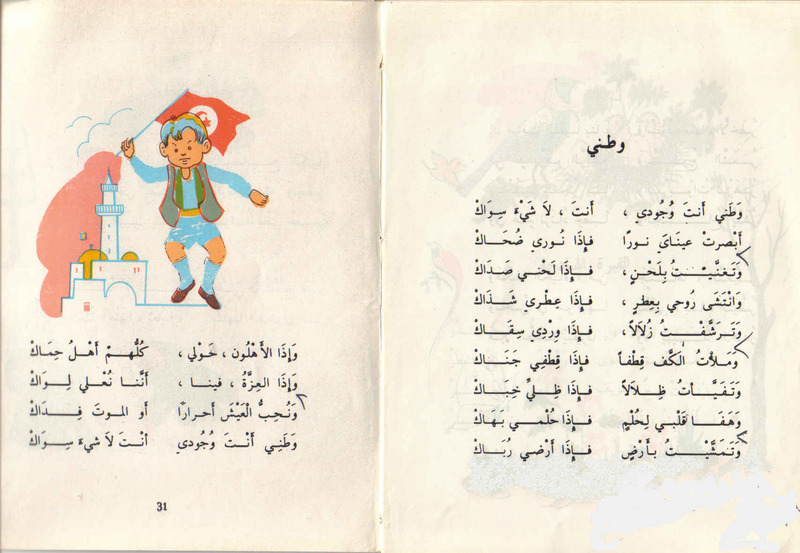 وطني
وَطَني أَنتَ وُجُودي ، أَنتَ ، لاَ شَيْءَ سِوَاكْ
أَبْصَرتْ عينَايَ نورًا فإِذَا نُورى ضُحَاكْ
وَتَغنَّيْتُ بِلَحْنٍ، فإِذَا لَحْني صَدَاكْ
وَانْتَشَى رُوحي بِعِطرٍ فإِذَا عِطْري شَذَاكْ
وَتَرَشَّفْتُ زُلاَلاً، فإِذَا وِرْدِى سِقَاكْ
وَمَلأْتُ الْكَفَّ قِطْفاً فإِذَا قِطْفِي جَنَاكْ
وَتَفَيَّأْتُ ظِلاَلاً فإِذَا ظِلِّي خِبَاكْ
وَهَفَا قَلْبي لِحُلْمٍ فإِذَا حُلْمي بَهَاكْ
وَتَمَشَّيْتُ بأَرْضٍ فإِذَا أَرْضي رُبَاكْ
وَإِذَا الأَهْلُون ، حَوْلي ، كُلُّهمْ أَهْلُ حِمَاكْ
وَإِذَا العِزَّةُ ، فينا ، أَنَّنا نُعْلي لِوَاكْ
وَنُحِبُّ الْعَيْشَ أَحرارًا أَو الموتَ فِدَاكْ
وَطَنِي أَنْتَ وُجُودي أَنْتَ لاَ شيءَ سِوَاكْ
31